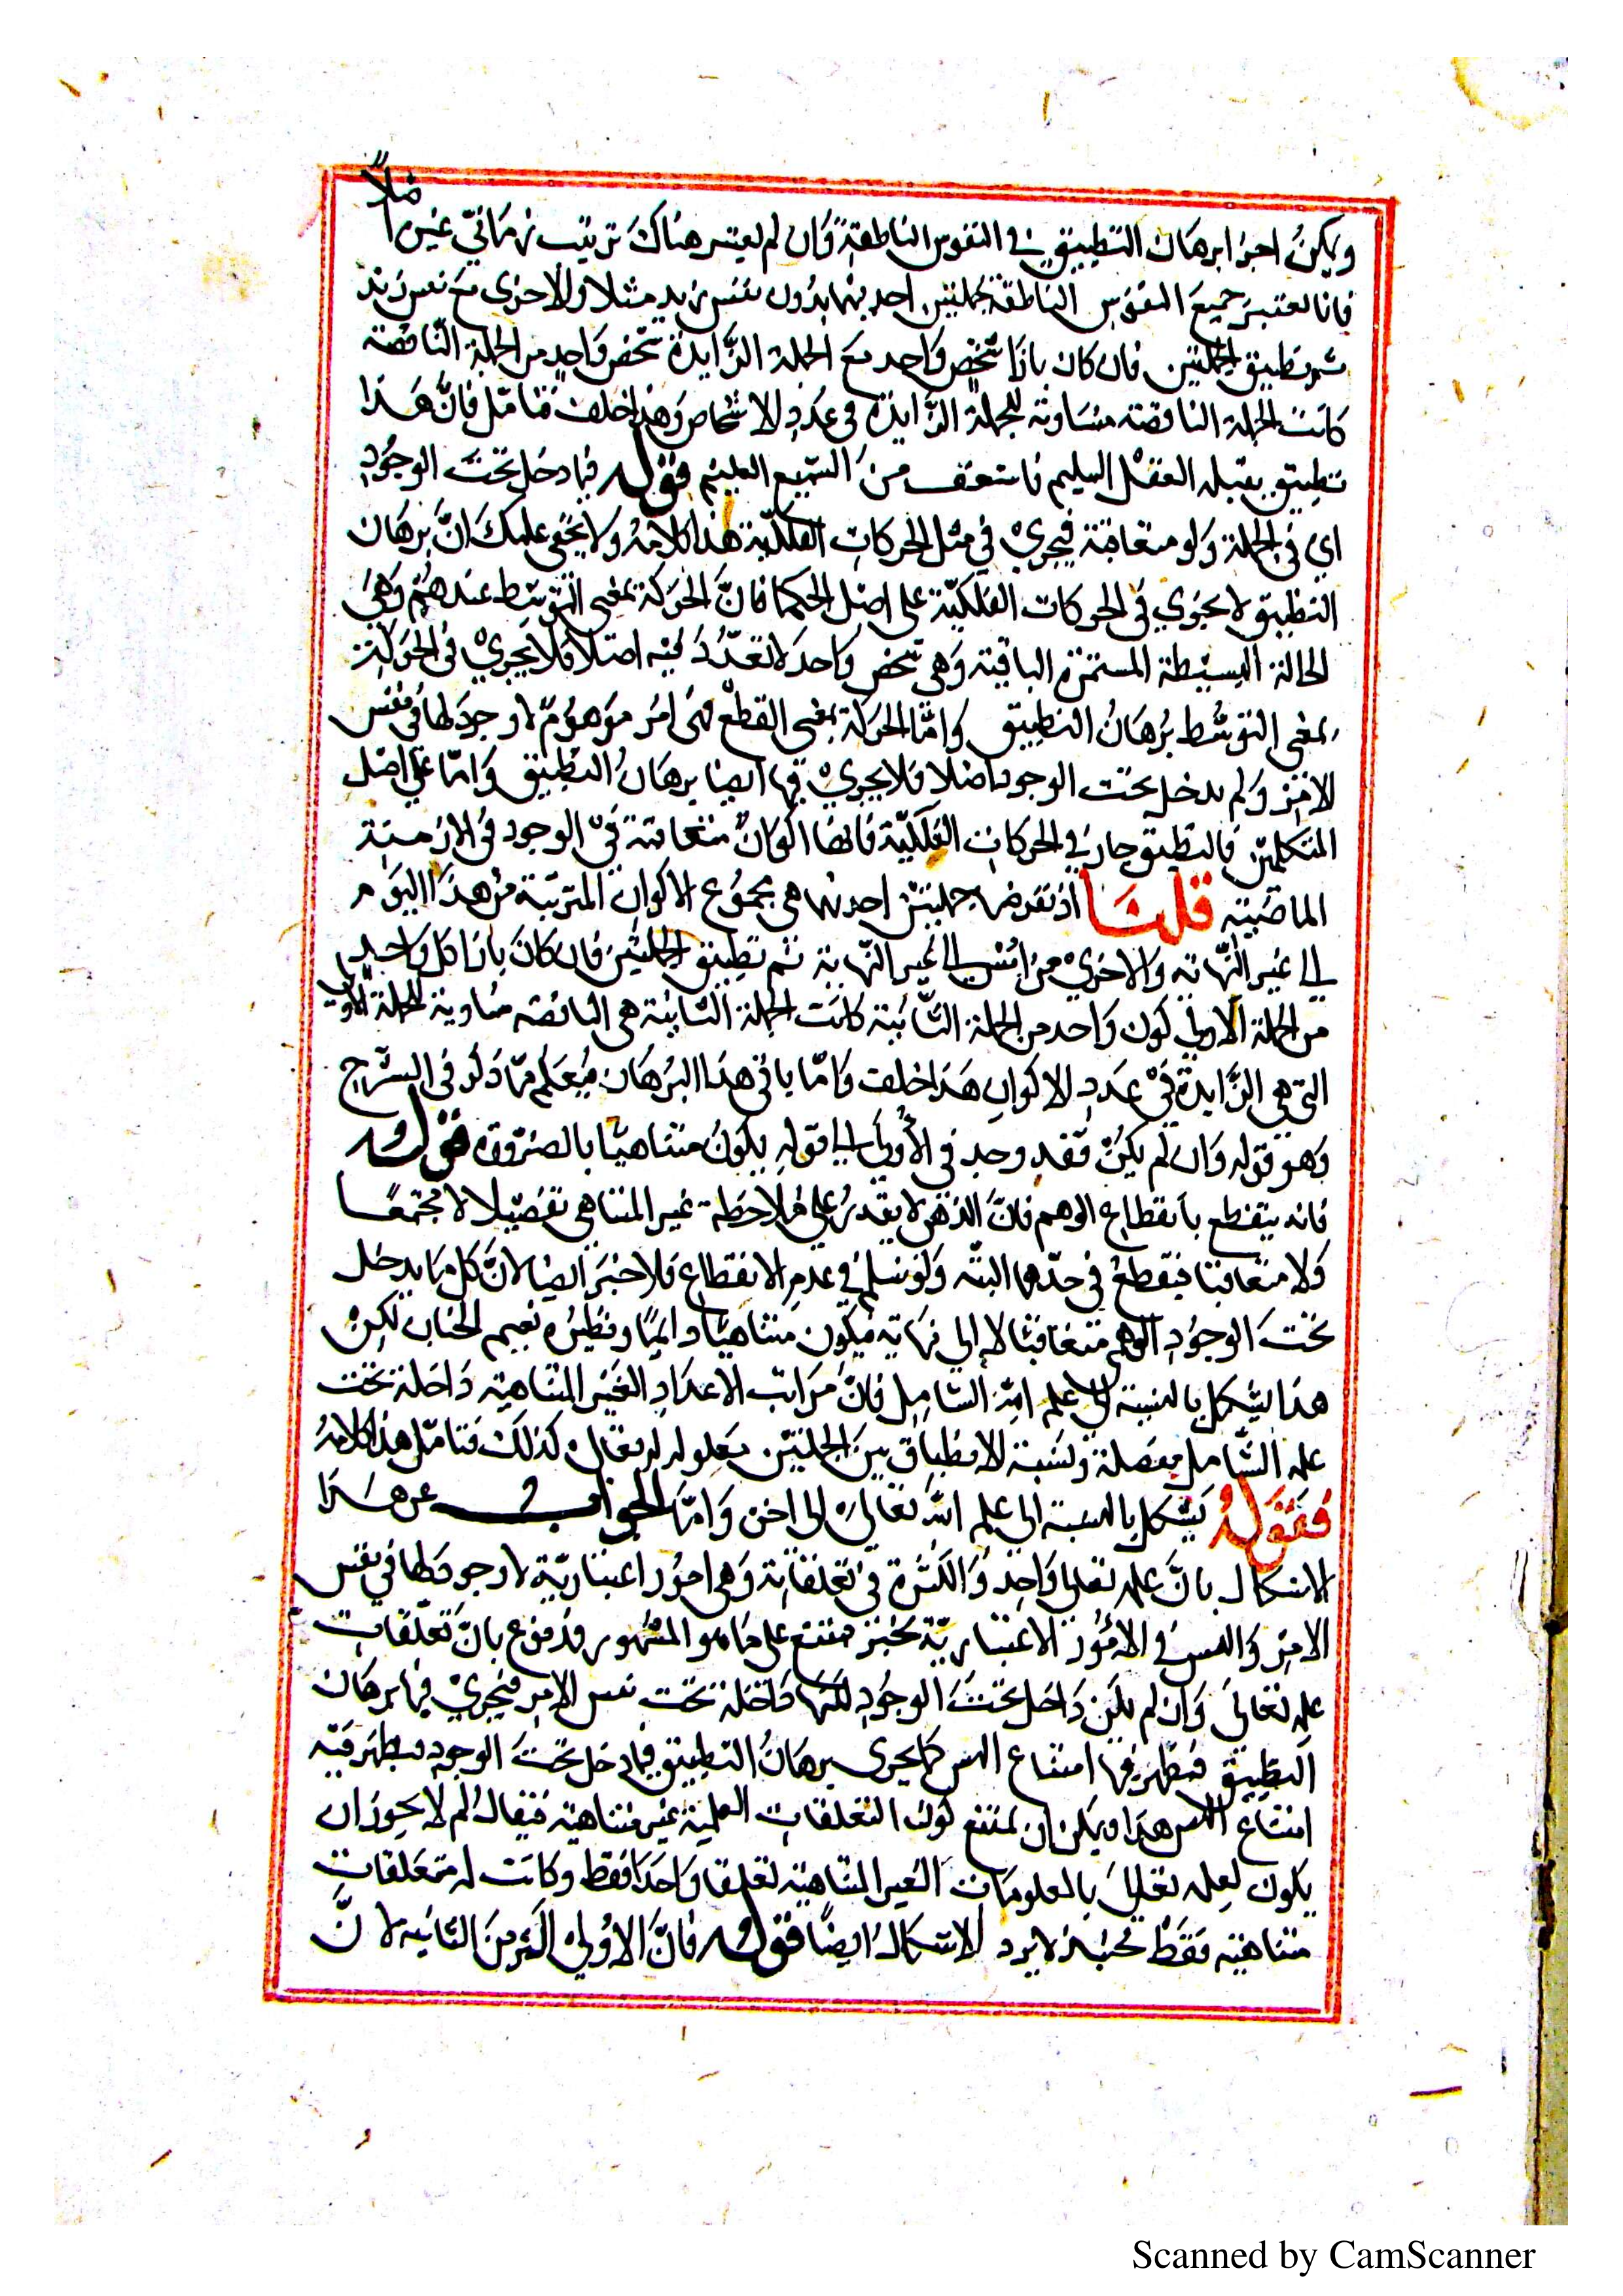 ويمكن اجراء برهان التطبيق في النفوس الناطقة وان لم يعتبر هناك ترتيب زماني غيره اصلاً
فانا نعتبر جميع النفوس الناطقة بجملتين احديهما بدون نفس زيد مثلا والاخرى مع نفس زيد
ثم تطبيق الجملتين فان كان بازاء شخص واحد مع الجملة الزايدة شخص واحد من الجملة الناقصة
كانت الجملة الناقصة مساوية للجملة الزايدة في عدد الاشخاص وهذا خلف فتامل فان هذا
تطبيق يقبله العقل السليم من السميع العليم قوله فيما دخل تحت الوجود
اي في الجملة ولو متعاقبة فيجري في مثل الحركات الفلكية هذا كلامه ولا يخفى عليك ان برهان
التطبيق لا يجري في الحركات الفلكية على اصل الحكما فان الحركة بمعنى التوسط عندهم وهي
الحالة البسيطة المستمرة الباقية وهي شخص واحد لا تعدد فيه اصلا فلا يجري في الحركة
بمعنى التوسط برهان التطبيق واما الحركة بمعنى القطع فهي امر موهوم لا وجود لها في نفس
الامر ولم يدخل تحت الوجود اصلا فلا يجري فيها ايضا برهان التطبيق واما على اصل
المتكلمين فالتطبيق جار في الحركات الفلكية فانها اكوان متعاقبة في الوجود في الازمنة
الماضية قلنا اذ نفرض جملتين احديهما هي مجموع الاكوان المترتبة من هذا اليوم
الى غير النهاية والاخرى من امس الى غير النهاية ثم تطبيق الجملتين فان كان بازاء كل واحد
من الجملة الاولى كون واحد من الجملة الثانية كانت الجملة الثانية هي الناقصة مساوية للجملة الاولى
التي هي الزايدة في عدد الاكوان هذا خلف واما باقي هذا البرهان فيعلم مما ذكر في الشرح
وهو قوله وان لم يكن فقد وجد في الاولى الى قوله يكون متناهيا بالضرورة قوله
فانه ينقطع بانقطاع الوهم فان الذهن لا يقدر على ملاحظة غير المتناهي تفصيلا لا مجتمعا
ولا متعاقبا فينقطع في حدها البتة ولو نسلم في عدم الانقطاع فلا خير ايضا لان كل ما يدخل
تحت الوجود الوهمي متعاقبا لا الى نهاية فيكون متناهيا دايما ونظيره نعيم الجنان لكن
هذا يشكل بالنسبة الى علم الله الشامل فان مراتب الاعداد الغير المتناهية داخلة تحت
علمه الشامل مفصلة ونسبة الانطباق بين الجملتين معلوم له تعالى كذلك فتامل هذا كلامه
فقوله يشكل بالنسبة الى علم الله تعالى الى اخره واما الجواب عن هذا
الاشكال بان علمه تعالى واحد والكثرة في تعلقاته وهي امور اعتبارية لا وجود لها في نفس
الامر والتس في الامور الاعتبارية غير ممتنع على ما هو المشهور مدفوع بان تعلقات
علمه تعالى وان لم يكن داخل تحت الوجود لكنها داخلة تحت نفس الامر فيجري فيها برهان
التطبيق فيظهر فيها امتناع التس كما يجري برهان التطبيق فيما دخل تحت الوجود ويظهر فيه
امتناع التس هذا ويمكن ان يمتنع كون التعلقات العلمية غير متناهية فيقال لم لا يجوز ان
يكون لعلمه تعالى بالمعلومات الغير المتناهية تعلقا واحدا فقط وكانت له متعلقات
متناهية فقط فحينئذ لا يرد الاشكال ايضا قوله فان الاولى اكثر من الثانية لان
Scanned by CamScanner